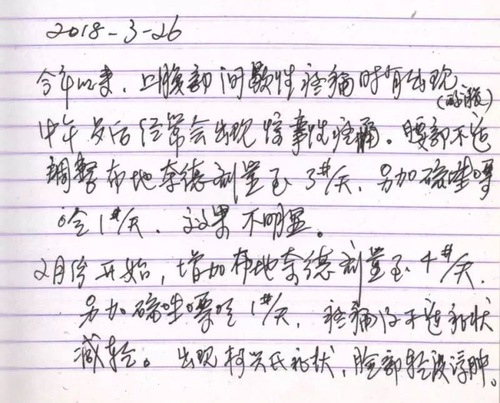 2018-3-26
今年以来，上腹部间歇性疼痛时有出现
(酸胀)
中午饭后经常会出现痉挛性疼痛。腹部不适
调整布地奈德剂量至3#/天，另加硫唑嘌
呤1#/天，效果不明显。
2月份开始，增加布地奈德剂量至4#/天，
另加硫唑嘌呤1#/天，疼痛及不适症状
减轻。出现柯兴氏症状，脸部轻度浮肿。